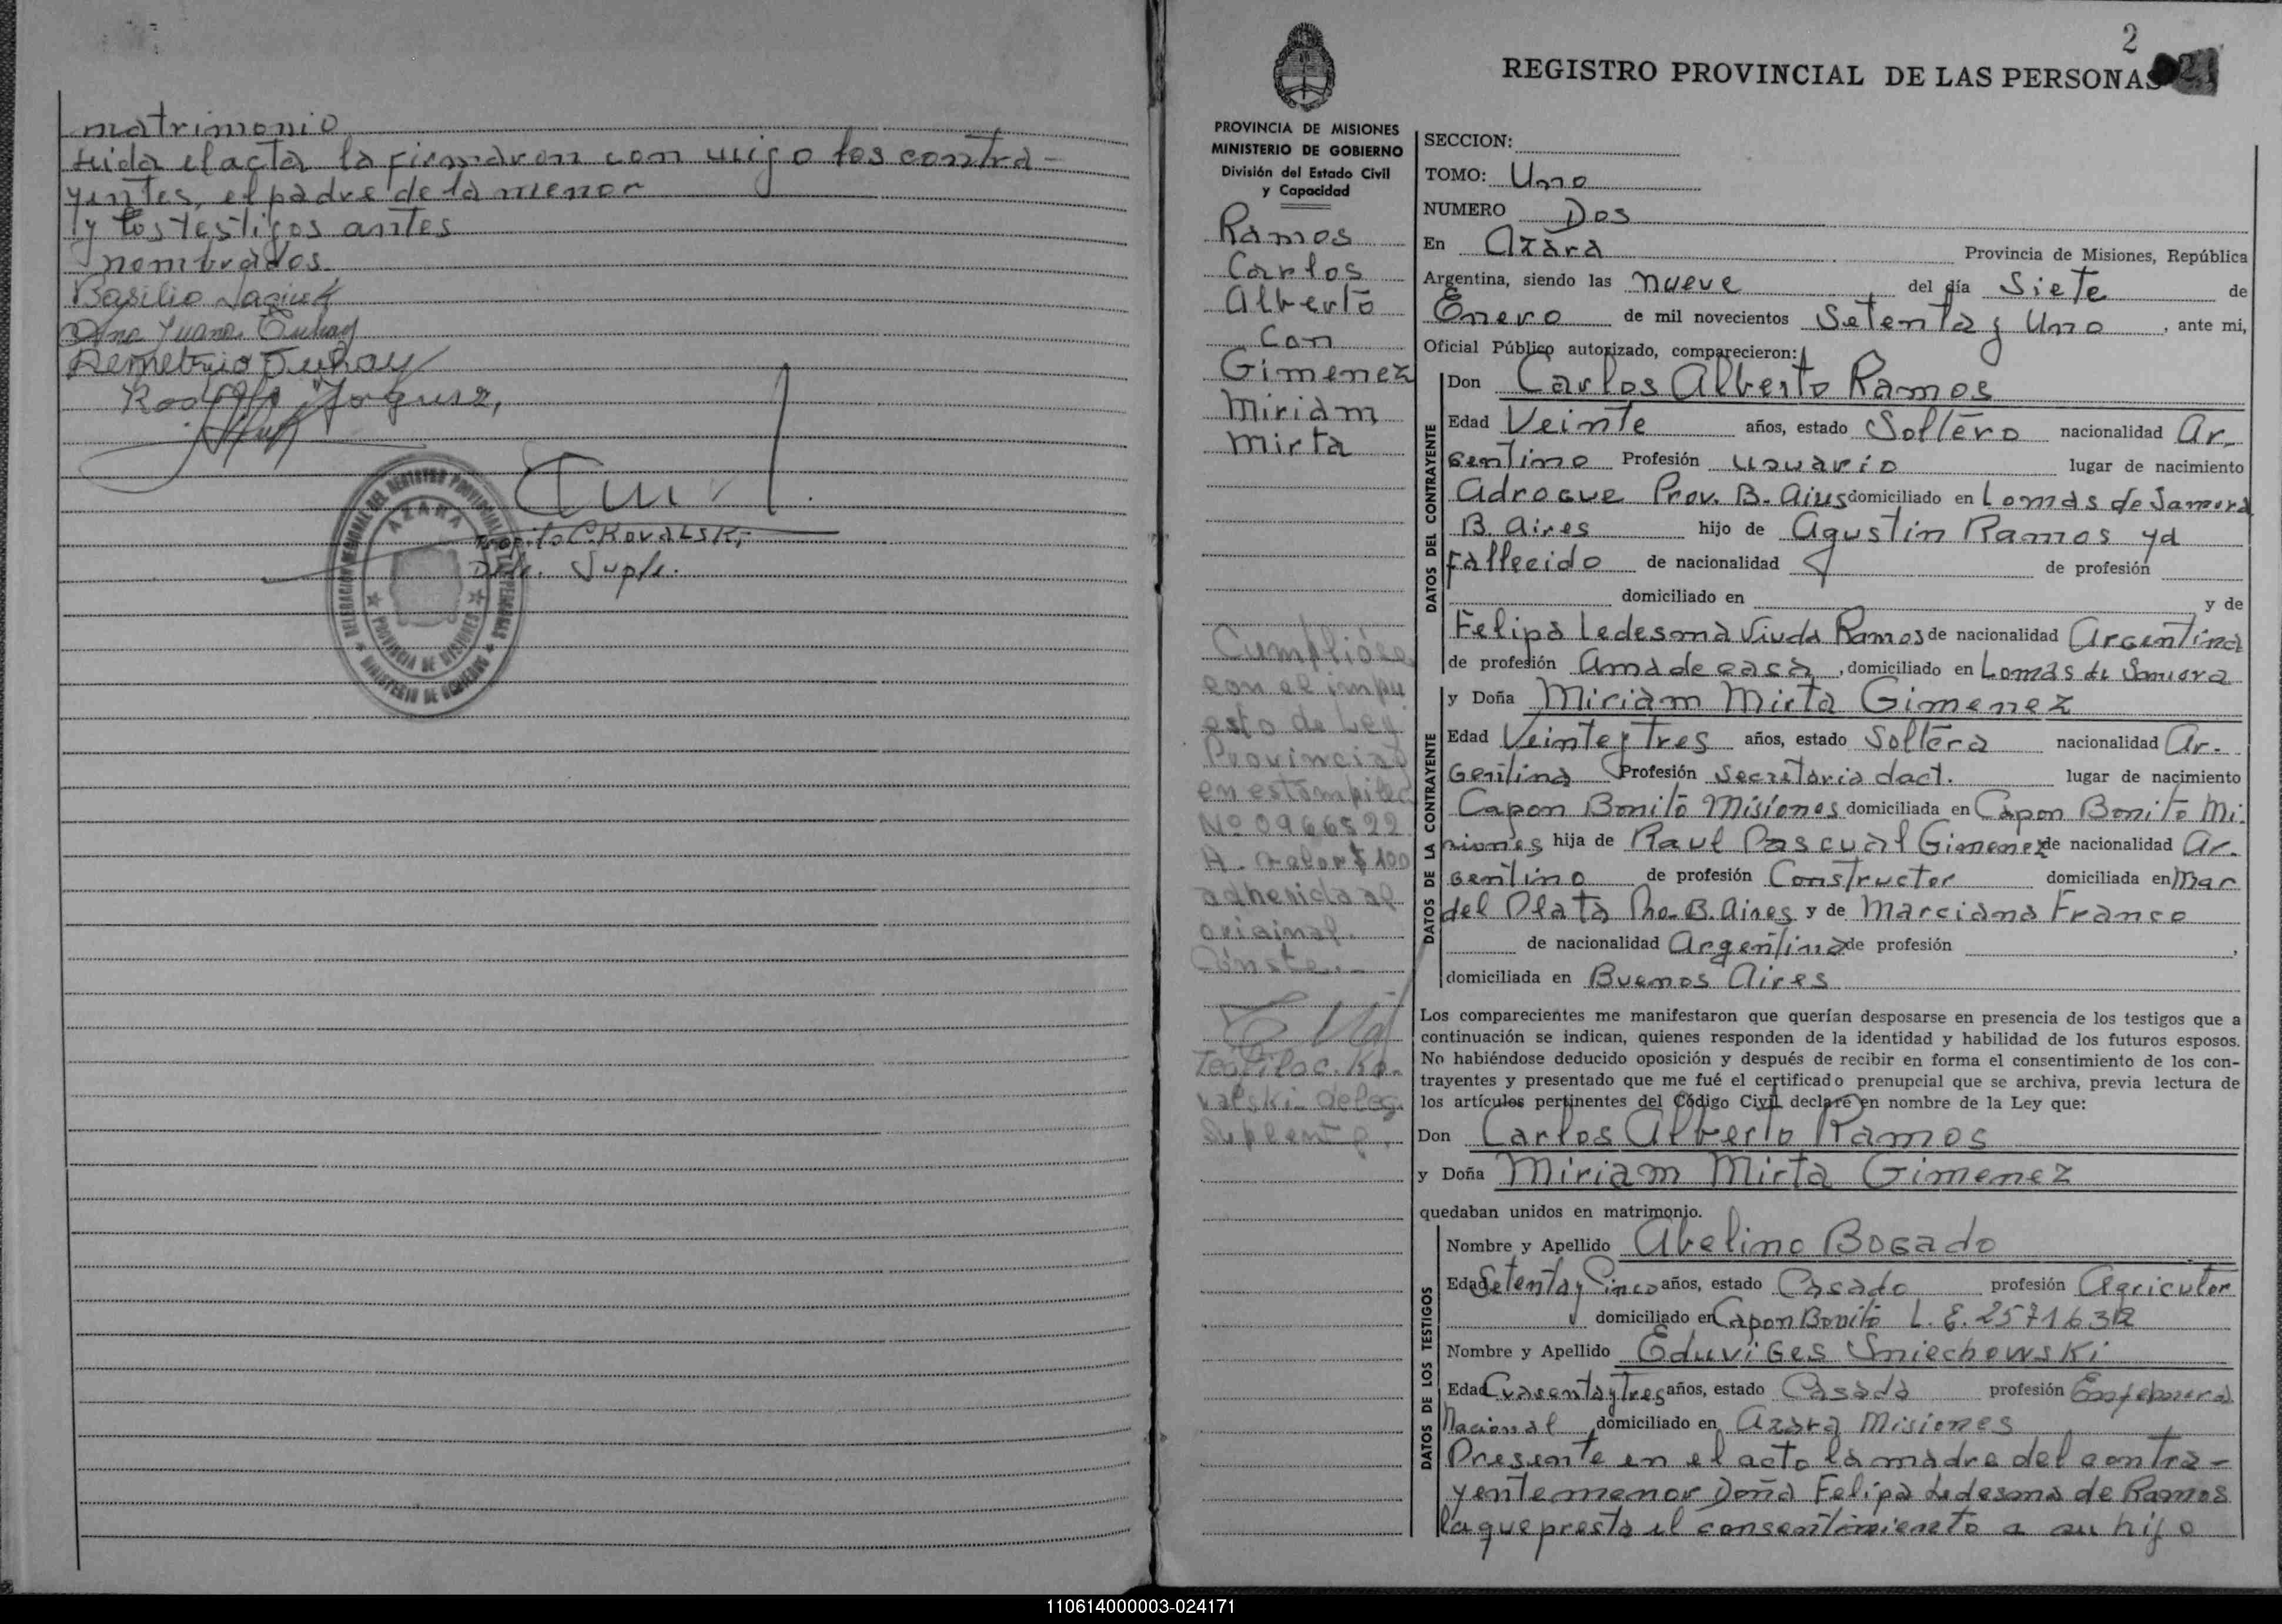 matrimonio
Leida el acta la firmaron con migo los contra-
yentes, el padre de la menor
y los testigos antes
nombrados.
Basilio
Ana Juana Duhay
Demetrio Duhay
Rodolfo
Teofilo C. Kovalski
Dele. Suple.
DELEGACION REGIONAL DEL REGISTRO PROVINCIAL DE LAS PERSONAS
AZARA
PROVINCIA DE MISIONES
MINISTERIO DE GOBIERNO
2
REGISTRO PROVINCIAL DE LAS PERSONAS
PROVINCIA DE MISIONES
MINISTERIO DE GOBIERNO
División del Estado Civil
y Capacidad
Ramos
Carlos
Alberto
Con
Gimenez
Miriam
Mirta
Cumplióse
con el impu
esto de Ley
Provincial
en estampilla
Nº 0966522
A. valor $ 100
adherida al
original.
Conste.-
Teofilo C. Ko-
valski Deleg.
Suplente.
SECCION:
TOMO: Uno
NUMERO Dos
En Azara Provincia de Misiones, República
Argentina, siendo las nueve del día Siete de
Enero de mil novecientos Setenta y Uno, ante mi,
Oficial Público autorizado, comparecieron:
DATOS DEL CONTRAYENTE
Don Carlos Alberto Ramos
Edad Veinte años, estado Soltero nacionalidad Ar-
gentino Profesión lugar de nacimiento
Adrogue Prov. B. Aires domiciliado en Lomas de Samora
B. Aires hijo de Agustin Ramos ya
fallecido de nacionalidad de profesión
domiciliado en y de
Felipa Ledesma Viuda Ramos de nacionalidad Argentina
de profesión Ama de casa, domiciliado en Lomas de Samora
DATOS DE LA CONTRAYENTE
y Doña Miriam Mirta Gimenez
Edad Veinte y Tres años, estado Soltera nacionalidad Ar-
gentina Profesión Secretaria dact. lugar de nacimiento
Capon Bonito Misiones domiciliada en Capon Bonito Mi-
siones hija de Raul Pascual Gimenez de nacionalidad Ar-
gentino de profesión Constructor domiciliada en Mar
del Plata Pro. B. Aires y de Marciana Franco
de nacionalidad Argentina de profesión ,
domiciliada en Buenos Aires
Los comparecientes me manifestaron que querían desposarse en presencia de los testigos que a
continuación se indican, quienes responden de la identidad y habilidad de los futuros esposos.
No habiéndose deducido oposición y después de recibir en forma el consentimiento de los con-
trayentes y presentado que me fué el certificado prenupcial que se archiva, previa lectura de
los artículos pertinentes del Código Civil declaré en nombre de la Ley que:
Don Carlos Alberto Ramos
y Doña Miriam Mirta Gimenez
quedaban unidos en matrimonio.
DATOS DE LOS TESTIGOS
Nombre y Apellido Abelino Bogado
Edad Setenta y Cinco años, estado Casado profesión Agricultor
domiciliado en Capon Bonito L. E. 2571632
Nombre y Apellido Eduviges Sniechowski
Edad Cuarenta y Tres años, estado Casada profesión Enfermera
Nacional domiciliado en Azara Misiones
Presente en el acto la madre del contra-
yente menor Doña Felipa Ledesma de Ramos
la que presta el consentimiento a su hijo
110614000003-024171